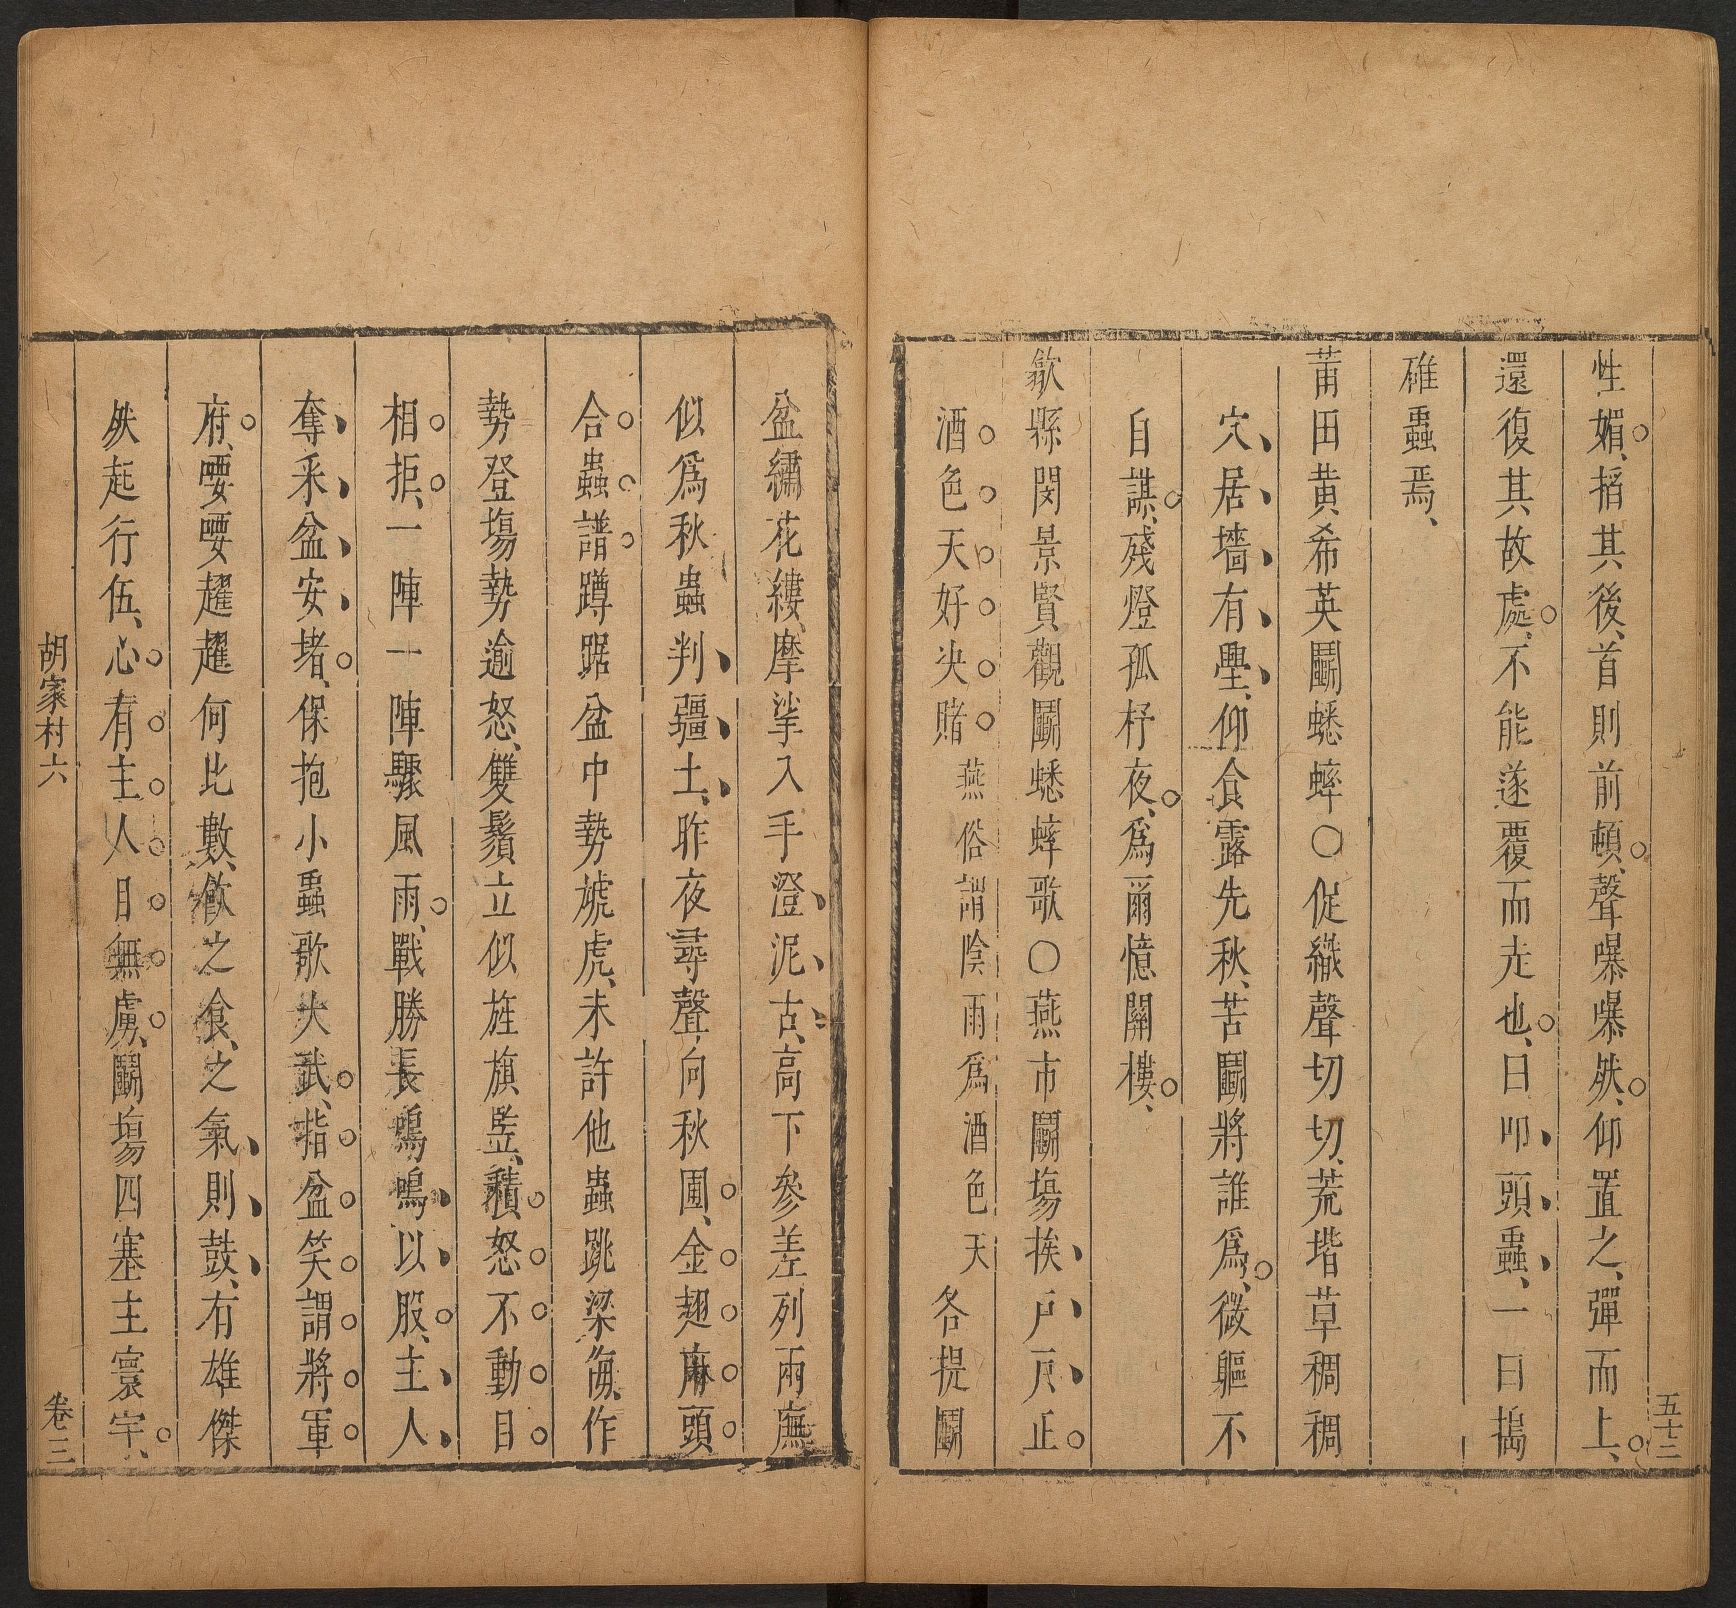 五十三
性媚、搯其後、首則前頓、聲嚗嚗然、仰置之、彈而上、
還復其故處、不能遂覆而走也、曰叩頭蟲、一曰搗
碓蟲焉、
莆田黃希英鬭蟋蟀○促織聲切切、荒堦草稠稠
穴居墻有壘、仰食露先秋、苦鬭將誰爲、微軀不
自謀、殘燈孤杼夜、爲爾憶關樓、
歙縣閔景賢觀鬭蟋蟀歌○燕市鬭塲挨戶戶止
酒色天好決賭燕俗謂陰雨爲酒色天各提鬭
盆繡花縷、摩挲入手澄泥古、高下參差列兩廡
似爲秋蟲判疆土、昨夜尋聲向秋圃、金翅麻頭
合蟲譜蹲踞盆中勢虓虎、未許他蟲跳梁侮、作
勢登塲勢逾怒、雙鬚立似旌旗竪、積怒不動目
相拒、一陣一陣驟風雨、戰勝長鳴鳴以股、主人
奪采盆安堵、保抱小蟲歌大武、指盆笑謂將軍
府、喓喓趯趯何比數、飲之食、之氣則鼓、有雄傑
然起行伍、心有主人目無虜、鬭塲四塞主寰宇、
胡家村六
卷三